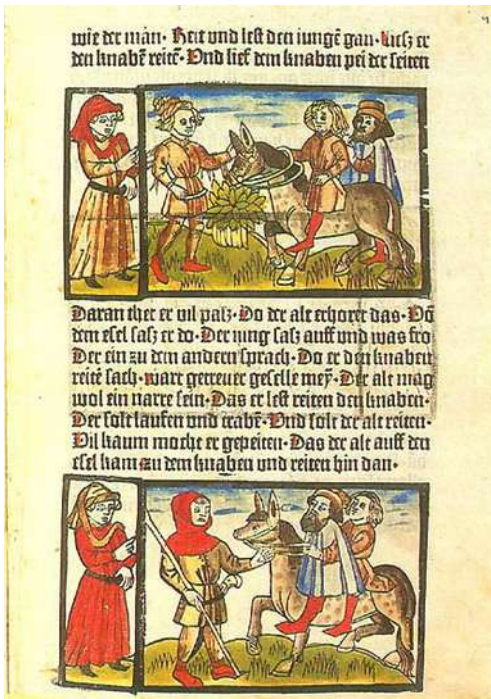 wie der man · Reit vnd lest den iungē gan · Liesz er
den knabē reitē · Vnd lief dem knaben pei der seiten
Daran thet er vil pasz · Do der alt erhoret das · Uō
dem esel sasz er do · Der iung sasz auff und was fro
Der ein zu dem anderen sprach · Do er den knaben
reitē sach · wart getreuer geselle mey · Der alt mag
wol ein narre sein · Das er lest reiten den knaben ·
Der solt laufen und trabē · Und solt der alt reiten ·
Vil kaum mocht er gepeiten · Das der alt auff den
esel kam zu dem knaben und reiten hin dan ·